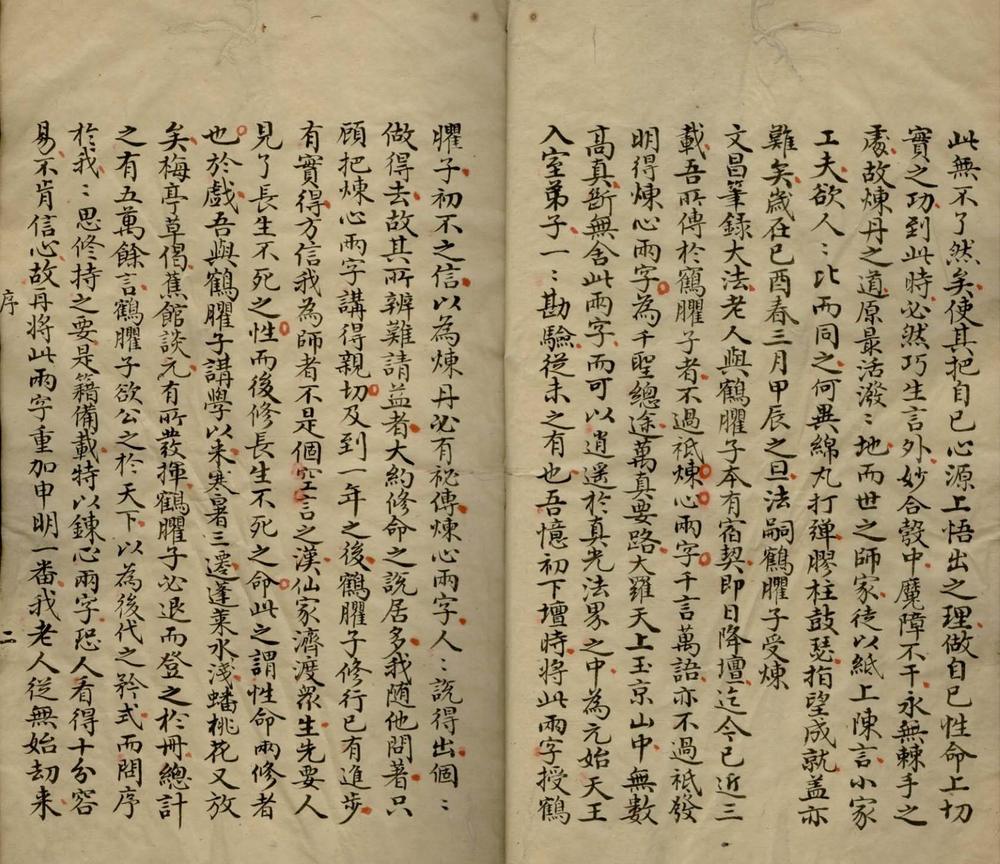 此無不了然矣使其把自己心源上悟出之理做自己性命上切
實之功到此時必然巧生言外妙合彀中魔障不干永無棘手之
處故煉丹之道原最活潑﹕地而世之師家徒以紙上陳言小家
工夫欲人﹕比而同之何異綿丸打彈膠柱鼓瑟指望成就盖亦
難矣歲在己酉春三月甲辰之旦法嗣鶴臞子受煉
文昌筆錄大法老人與鶴臞子夲有宿契即日降壇迄今已近三
載吾所傳於鶴臞子者不過祗煉心兩字千言萬語亦不過祗發
明得煉心兩字為千聖總途萬真要路大羅天上玉京山中無數
高真斷無舍此兩字而可以逍遥於真光法界之中為元始天王
入室弟子一﹕勘驗從未之有也吾憶初下壇時將此兩字授鶴
臞子初不之信以為煉丹必有祕傳煉心兩字人﹕說得出個﹕
做得去故其所辨難請益者大約修命之說居多我随他問著只
顧把煉心兩字講得親切及到一年之後鶴臞子修行已有進步
有實得方信我為師者不是個空言之漢仙家濟渡眾生先要人
見了長生不死之性而後修長生不死之命此之謂性命兩修者
也於戲吾與鶴臞子講學以来寒暑三遷蓬萊水淺蟠桃花又放
矣梅亭草偈蕉館談元有所發揮鶴臞子必退而登之於冊總計
之有五萬餘言鶴臞子欲公之於天下以為後代之矜式而問序
於我﹕思修持之要是籍備載特以錬心兩字恐人看得十分容
易不肯信心故再將此兩字重加申明一番我老人從無始刼来
序
二